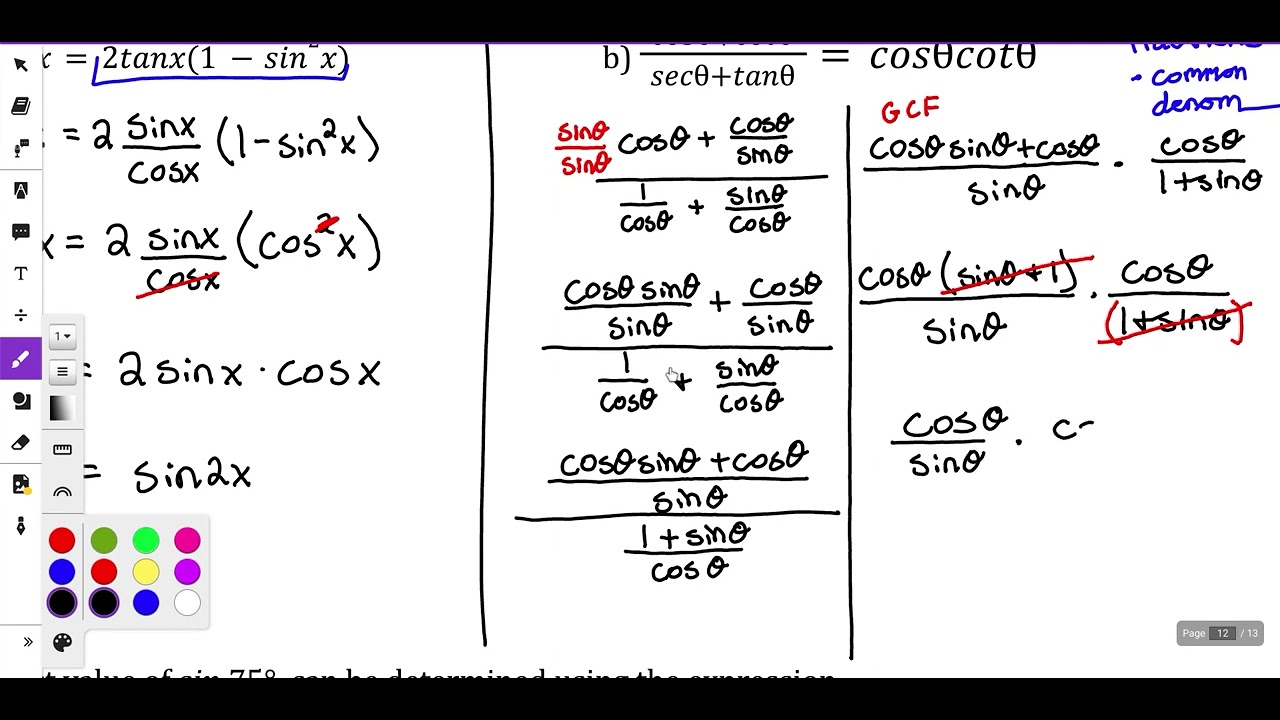 x = 2tanx(1 − sin²x)
= 2 sinx/cosx (1-sin²x)
x = 2 sinx/cosx (cos²x)
= 2 sinx · cosx
= sin2x
b) secθ+tanθ = cosθcotθ
sinθ/sinθ cosθ + cosθ/sinθ
1/cosθ + sinθ/cosθ
cosθ sinθ/sinθ + cosθ/sinθ
1/cosθ + sinθ/cosθ
cosθ sinθ + cosθ
sinθ
1 + sinθ
cosθ
• common
denom
GCF
cosθ sinθ+cosθ/sinθ · cosθ/1+sinθ
cosθ (sinθ+1)/sinθ · cosθ/(1+sinθ)
cosθ/sinθ · c
t value of sin 75° can be determined using the expression
T
1
Page 12 / 13